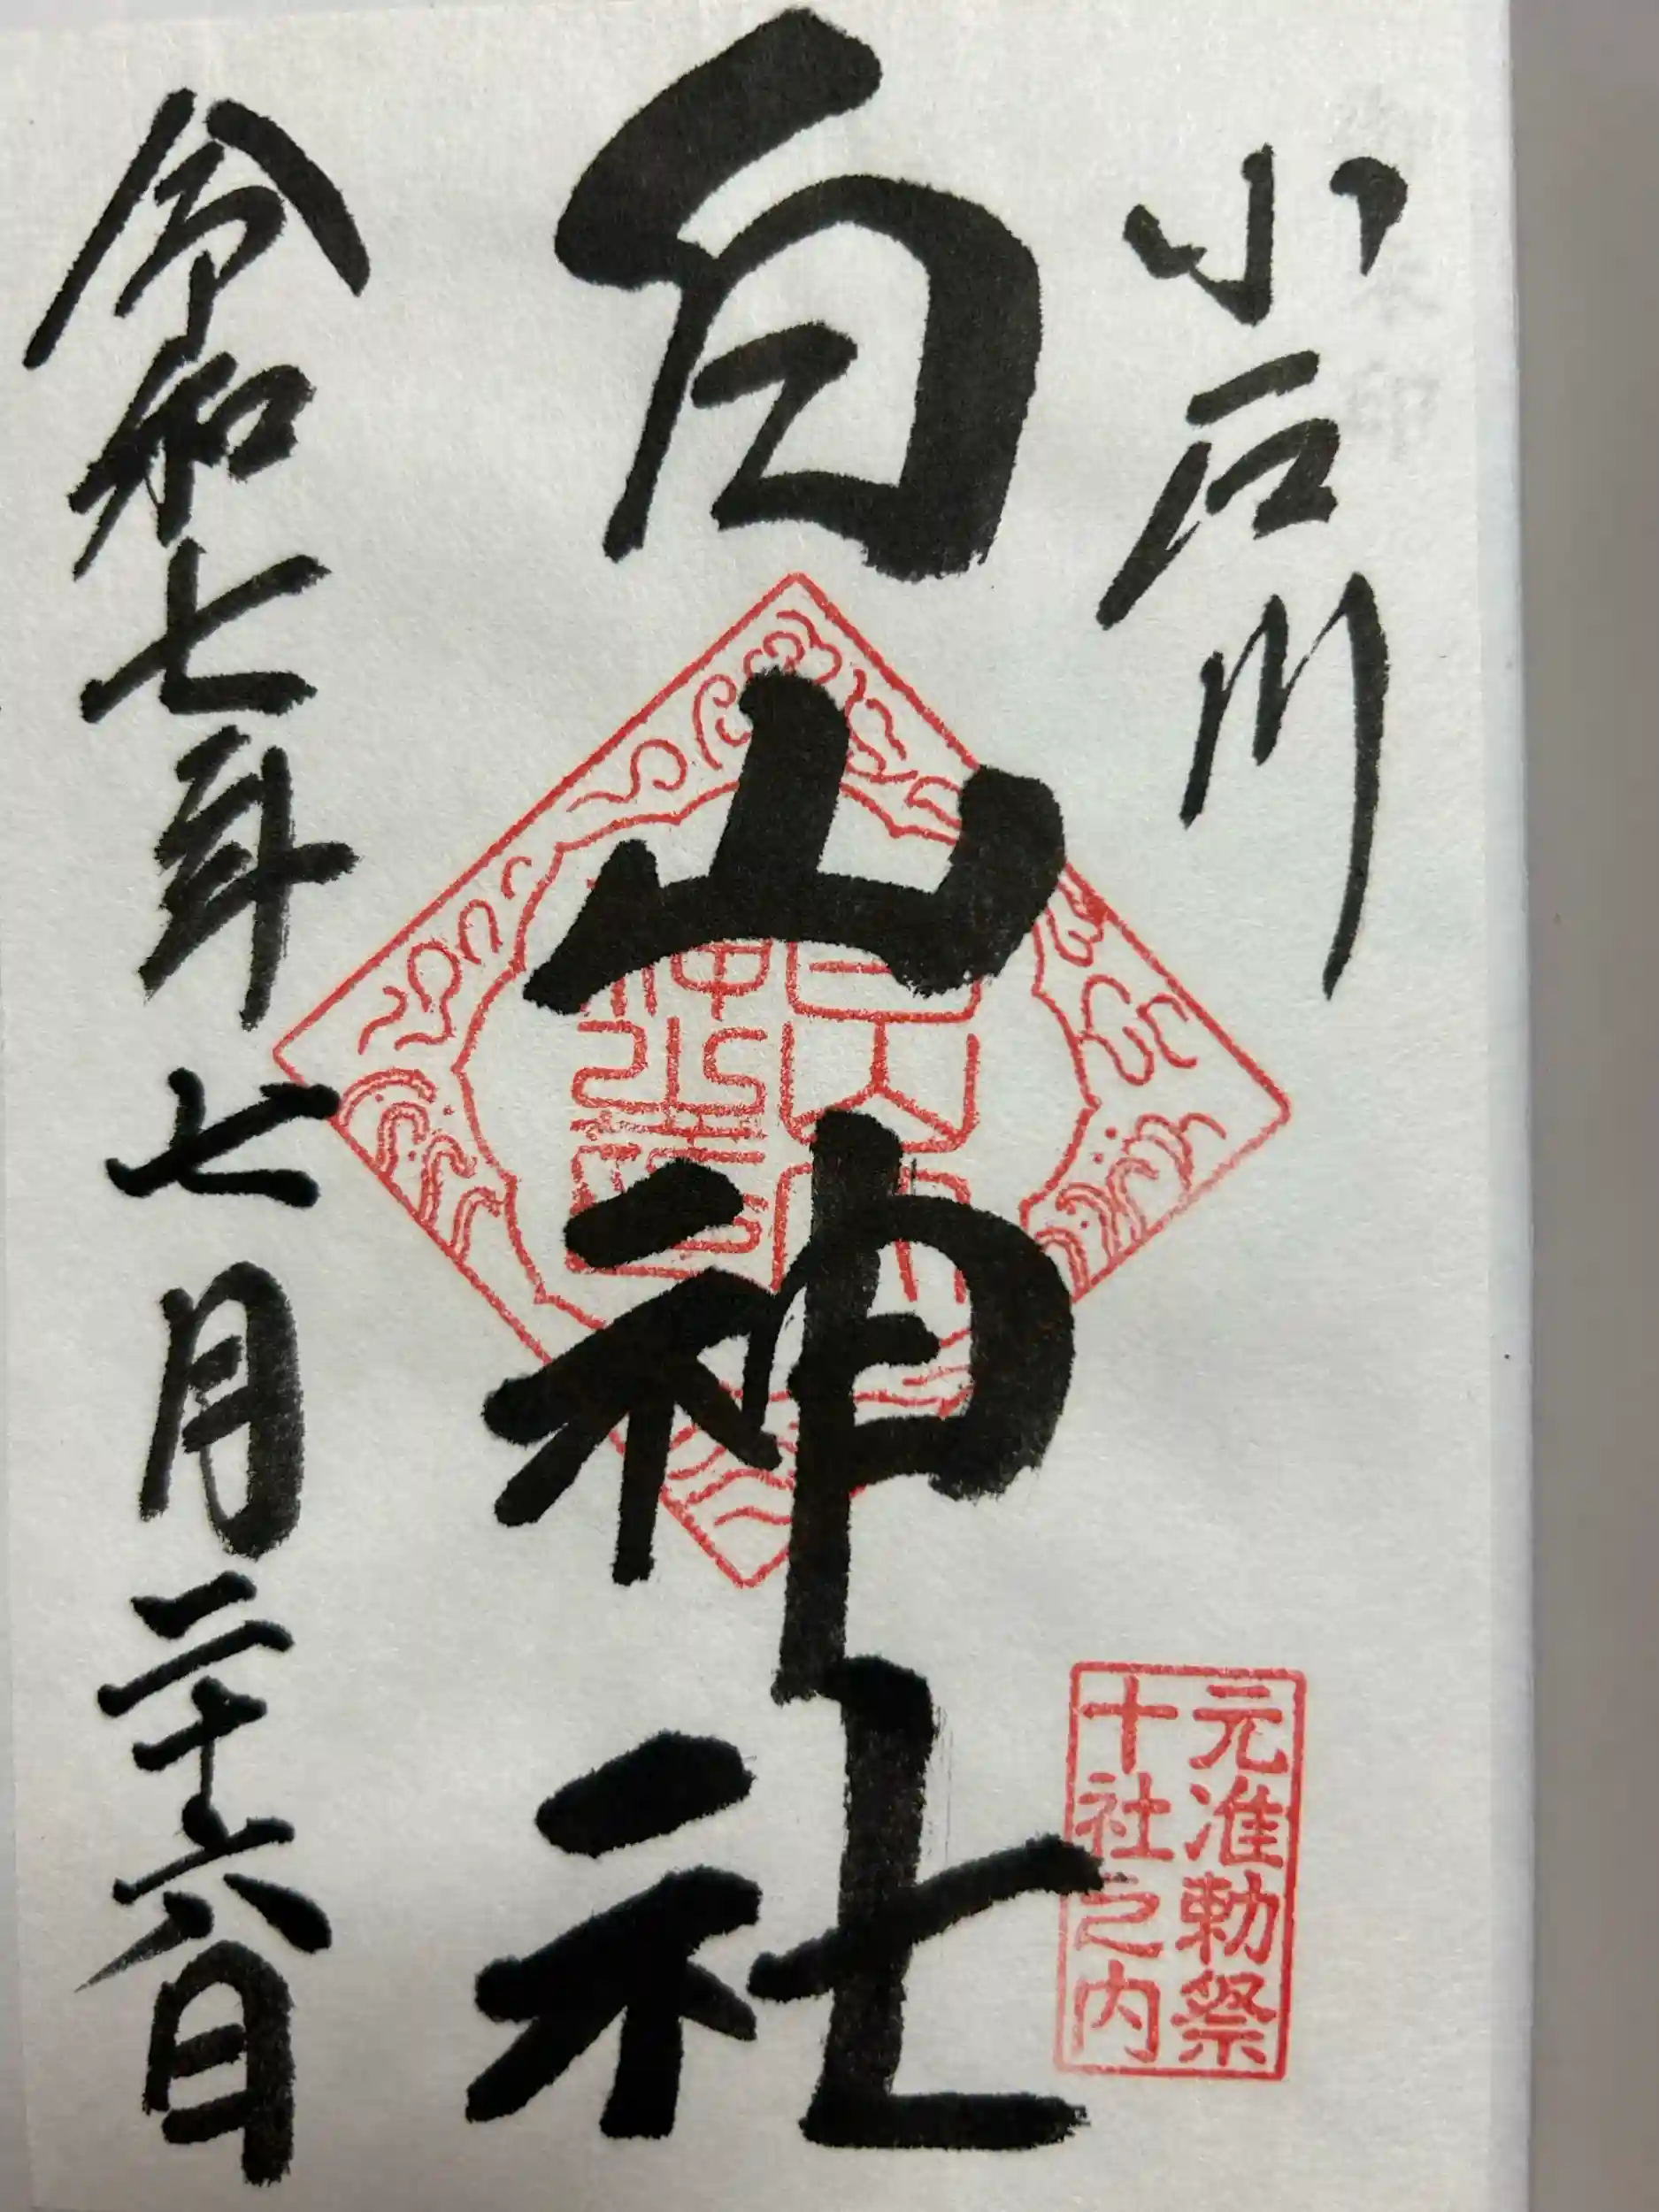 小石川
白山神社
令和七年七月二十六日
元准勅祭
十社之内